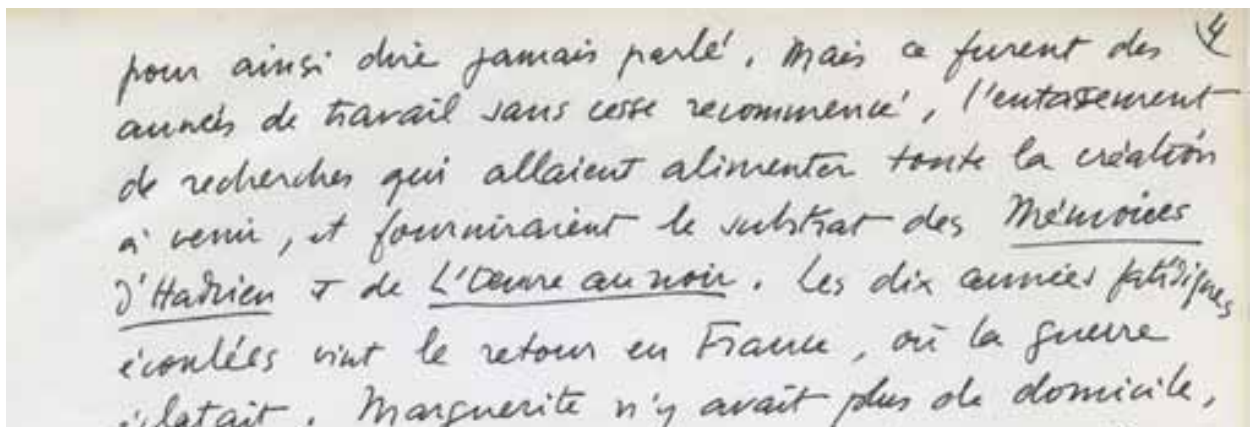 4
pour ainsi dire jamais parlé. Mais ce furent des
années de travail sans cesse recommencé, l'entassement
de recherches qui allaient alimenter toute la création
à venir, et fourniraient le substrat des Mémoires
d'Hadrien & de L'Œuvre au noir. Les dix années fatidiques
écoulées vint le retour en France, où la guerre
éclatait. Marguerite n'y avait plus de domicile,